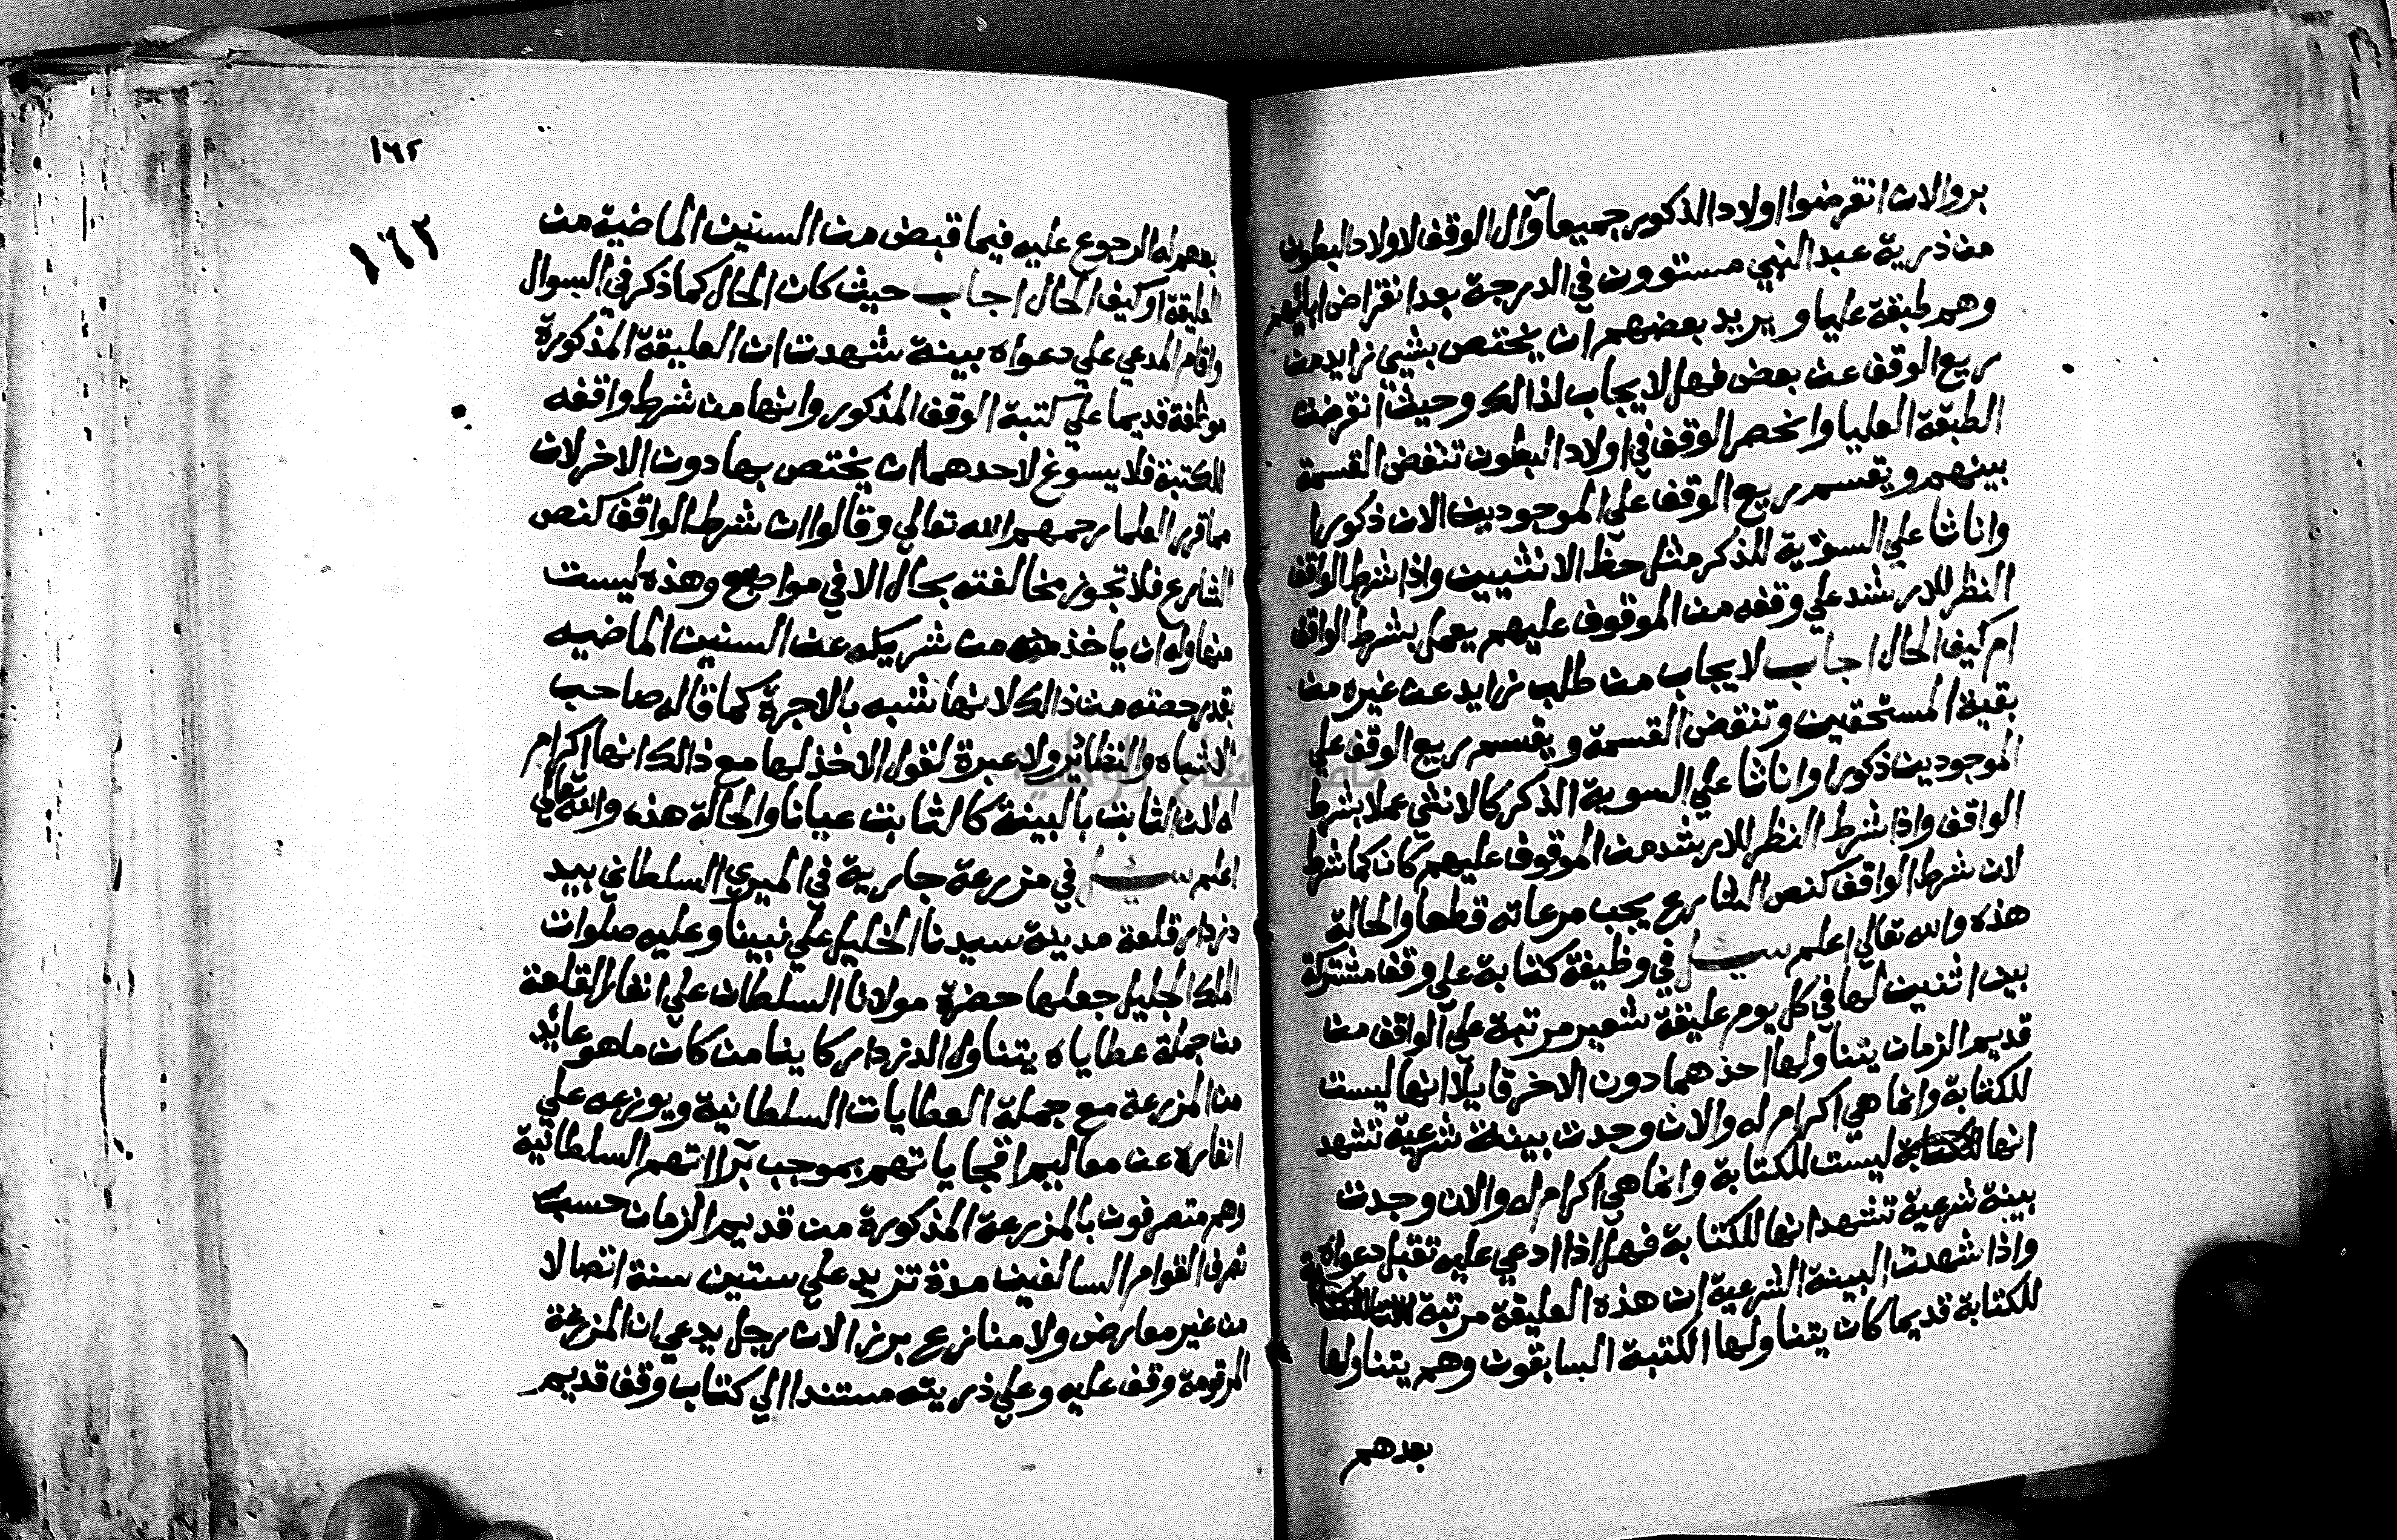 بر والان انقرضوا اولاد الذكور جميعا وآل الوقف لاولاد البطون
من ذرية عبد النبي مستوون في الدرجة بعد انقراض ابائهم
وهم طبقة عليا ويريد بعضهم ان يختص بشيئ زايد من
ريع الوقف عن بعض فهل لا يجاب لذالك وحيث انقرضت
الطبقة العليا وانحصر الوقف في اولاد البطون تنقض القسمة
بينهم ويقسم ريع الوقف علي الموجودين الان ذكورا
واناثا علي السوية للذكر مثل حظ الانثيين واذا شرط الواقف
النظر للارشد علي وقفه من الموقوف عليهم يعمل بشرط الواقف
ام كيف الحال اجاب لا يجاب من طلب زايد عن غيره من
بقية المستحقين وتنقض القسمة ويقسم ريع الوقف علي
الموجودين ذكورا واناثا علي السوية الذكر كالانثي عملا بشرط
الواقف واذا شرط النظر للارشد من الموقوف عليهم كان كما شرط
لان شرط الواقف كنص الشارع يجب مرعاته قطعا والحالة
هذه والله تعالي اعلم سئل في وظيفة كتابة علي وقف مشتركة
بين اثنين لها في كل يوم عليقة شعير مرتبة علي الواقف من
قديم الزمان يتناولها احدهما دون الاخر قايلا انها ليست
للكتابة وانما هي اكرام له والان وجدت بينة شرعية تشهد
انها للكتابة ليست للكتابة وانما هي اكرام له والان وجدت
بينة شرعية تشهد انها للكتابة فهل اذا ادعي عليه تقبل دعواه
واذا شهدت البينة الشرعية ان هذه العليقة مرتبة
للكتابة قديما كان يتناولها الكتبة السابقون وهم يتناولها
بعدهم
١٦٢
١٦٢
بعدهم له الرجوع عليه فيما قبض من السنين الماضية من
العليقة او كيف الحال اجاب حيث كان الحال كما ذكر في السوال
واقام المدعي علي دعواه بينة شهدت ان العليقة المذكورة
موظفة قديما علي كتبة الوقف المذكور وانها من شرط واقفه
للكتبة فلا يسوغ لاحدهما ان يختص بها دون الاخر لان
مما قرر العلما رحمهم الله تعالي وقالوا ان شرط الواقف كنص
الشارع فلا تجوز مخالفته بحال الا في مواضع وهذه ليست
منها وله ان ياخذ من شريكه عن السنين الماضيه
بقدر حصته من ذالك لانها تشبه بالاجرة كما قاله صاحب
الاشباه والنضائر ولا عبرة لقول الاخذ لها مع ذالك انها اكرام
له لان الثابت بالبينة كالثابت عيانا والحالة هذه والله تعالي
اعلم سئل في مزرعة جارية في الميري السلطاني بيد
دزدار قلعة مدينة سيدنا الخليل علي نبينا وعليه صلوات
الملك الجليل جعلها حضرة مولانا السلطان علي انفار القلعة
من جملة عطاياه يتناول الدزدار كاينا من كان ما هو عايد
من المزرعة مع جملة العطايات السلطانية ويوزعه علي
انفاره عن معاليم اقجاياتهم بموجب براآتهم السلطانية
وهم متصرفون بالمزرعة المذكورة من قديم الزمان حسب
تصرف القوام السالفين مدة تزيد علي ستين سنة اتصالا
من غير معارض ولا منازع برز الان رجل يدعي ان المزرعة
المرقومة وقف عليه وعلي ذريته مستندا الي كتاب وقف قديم